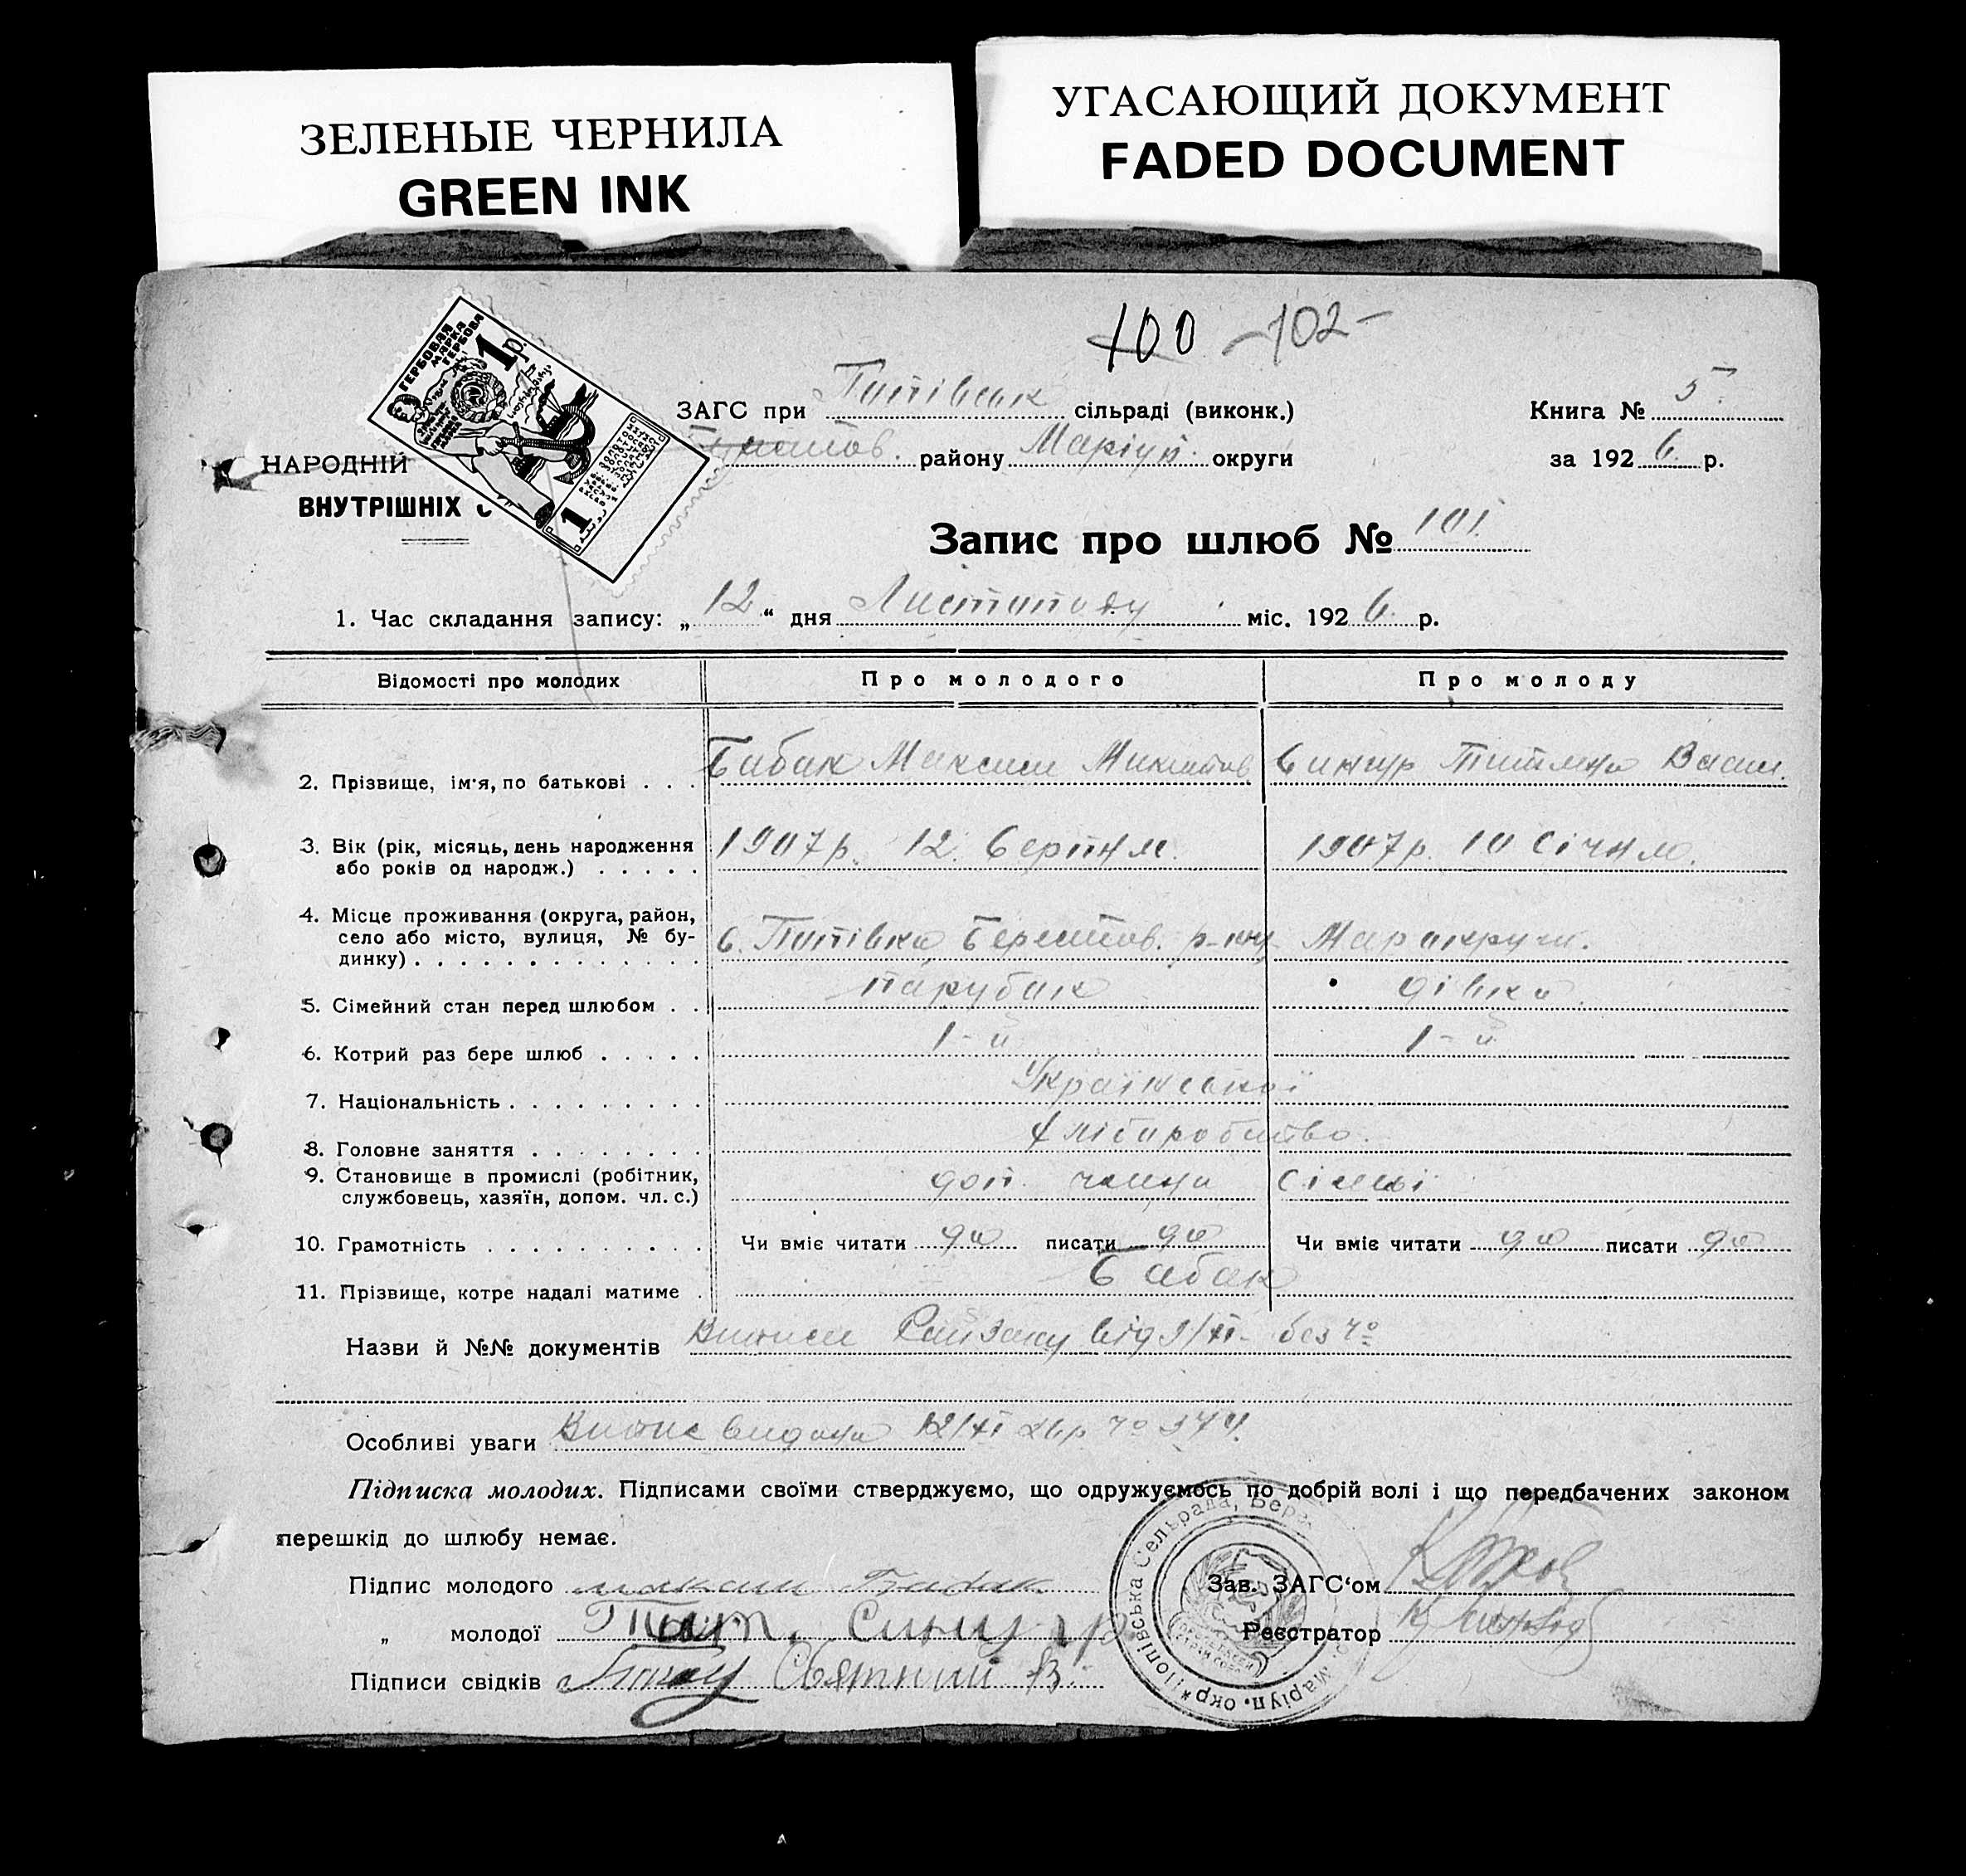 ЗЕЛЕНЫЕ ЧЕРНИЛА
GREEN INK
УГАСАЮЩИЙ ДОКУМЕНТ
FADED DOCUMENT
100 -102-
ГЕРБОВАЯ МАРКА ГЕРБОВА
1 р
1
ЗАГС при Попівськ сільраді (виконк.) Книга № 5.
району Маріуп. округи за 1926 р.
НАРОДНІЙ
ВНУТРІШНІХ С
Запис про шлюб № 101
1. Час складання запису: „ 12 “ дня Листопаду міс. 1926 р.
Відомості про молодих Про молодого Про молоду
2. Прізвище, ім'я, по батькові . . . Бабак Максим Микитов Сингур Тетяна Васил.
3. Вік (рік, місяць, день народження 1907р. 12 Серпня 1907р. 10 Січня.
або років од народж.) . . . . .
4. Місце проживання (округа, район,
село або місто, вулиця, № бу- с. Попівка, Берестов. р-ну Маріюпуч.
динку) . . . . . . . . . . . . .
5. Сімейний стан перед шлюбом . . парубак дівка.
6. Котрий раз бере шлюб . . . . . 1-й 1-й
7. Національність . . . . . . . . . Української
8. Головне заняття . . . . . . . . Хліборобство.
9. Становище в промислі (робітник, доп. члени сім'ї
службовець, хазяїн, допом. чл. с.)
10. Грамотність . . . . . . . . . . Чи вміє читати да писати да Чи вміє читати да писати да
11. Прізвище, котре надалі матиме . Бабак
Назви й №№ документів Виписи від 9/XI- без №
Особливі уваги Випис видана 12/XI 26р №
Підписка молодих. Підписами своїми стверджуємо, що одружуємось по добрій волі і що передбачених законом
перешкід до шлюбу немає.
Підпис молодого максим Бабак Зав. ЗАГС‘ом
„ молодої Тат. Сингур Реєстратор
Підписи свідків Святний В.
Попівська Сельрада, Берес Маріуп. окр*